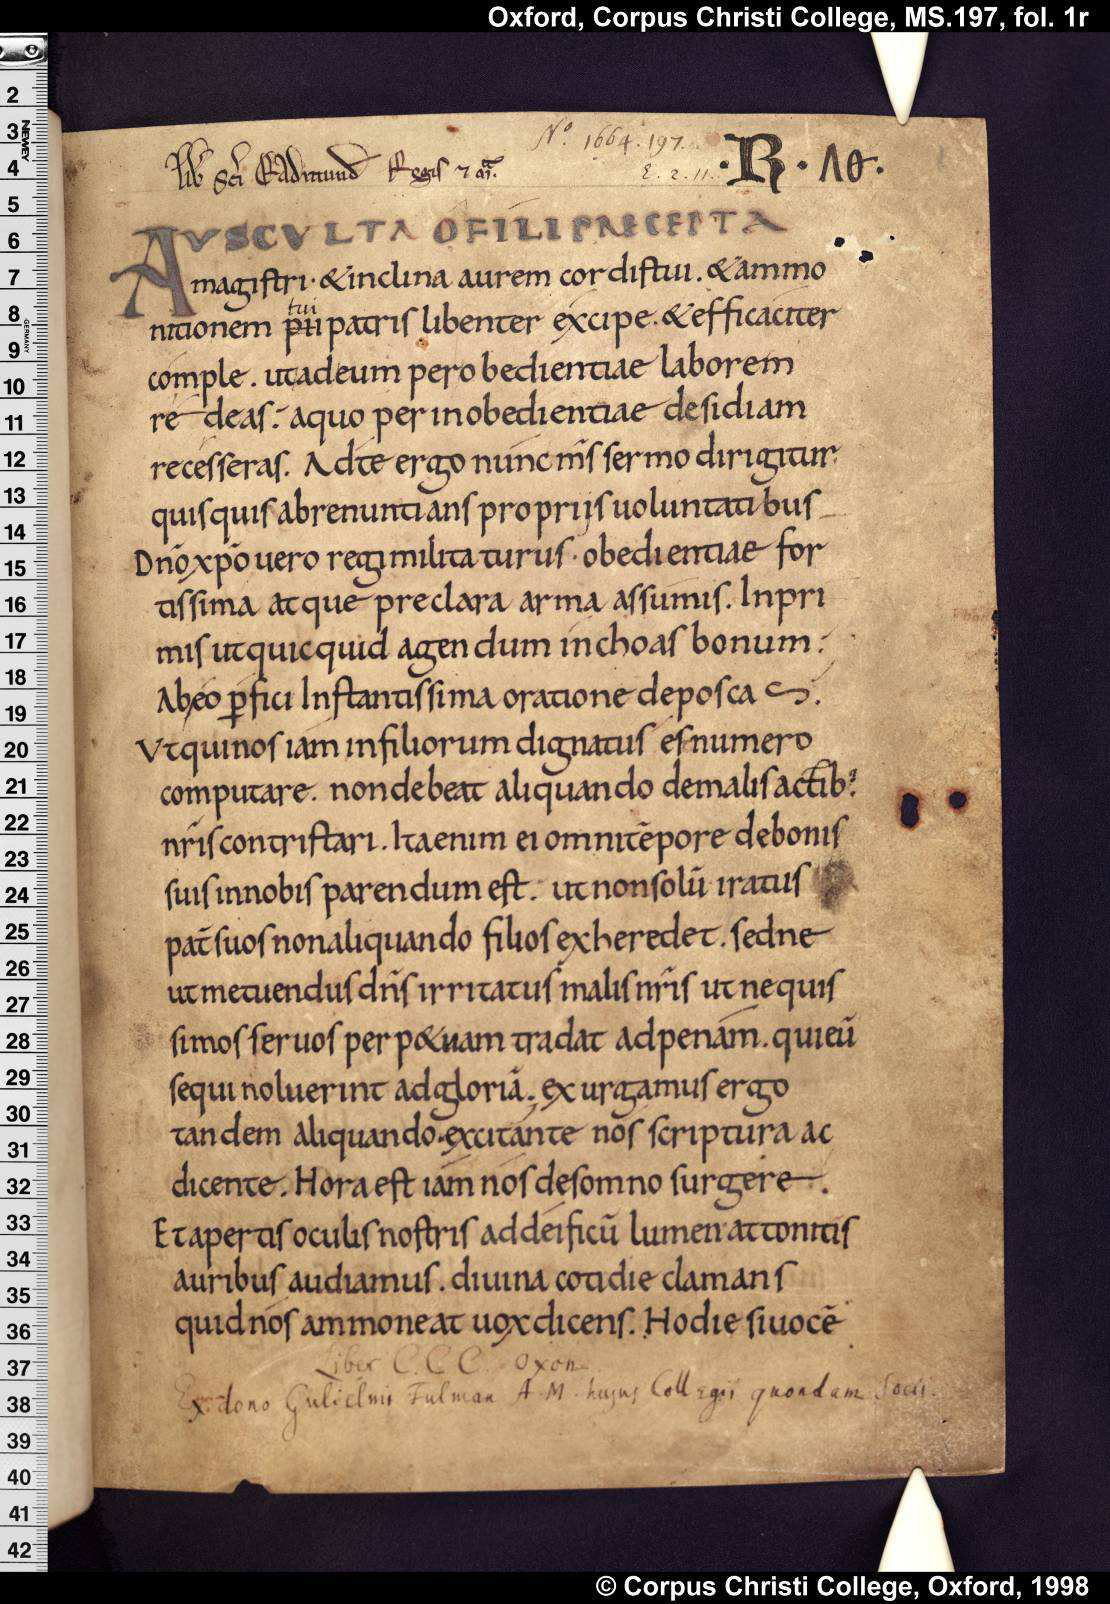 Oxford, Corpus Christi College, MS.197, fol. 1r
Nº. 1664. 197.
Lib̄ Sc̄i Eadmund Regis ⁊ m̄r̄.
E. 2. 11.
·R·
AUSCULTA O FILI PRECEPTA
magistri· &inclina aurem cordistui. &ammo
tui
nitionem pii patris libenter excipe. &efficaciter
comple. utadeum perobedientiae laborem
redeas. aquo perinobedientiae desidiam
recesseras. Adte ergo nunc m̄s sermo dirigitur
quisquis abrenuntians proprijs uoluntatibus
Dn̄o xp̄o uero regi militaturus· obedientiae for
tissima atque preclara arma assumis. Inpri
mis utquicquid agendum inchoas bonum
Abeo ꝑfici Instantissima oratione deposcas.
Utquinos iam infiliorum dignatus es numero
computare. nondebeat aliquando demalis actib;
nr̄is contristari. Itaenim ei omnitēpore debonis
suis innobis parendum est. ut nonsolū iratus
pat̄ suos nonaliquando filios exheredet. sedne
ut metuendus dn̄s irritatus malis nr̄is ut nequis
simos seruos perp&uam tradat adpenam. quieū
sequi noluerint adgloriā. exurgamus ergo
tandem aliquando· excitante nos scriptura ac
dicente. Hora est iam nos desomno surgere.
Et apertis oculis nostris addeificū lumen attonitis
auribus audiamus. diuina cotidie clamans
quid nos ammoneat uox dicens. Hodie si uocē
Liber C. C. C. Oxon
Ex dono Gulielmi Fulman A. M. hujus Collegii quondam Socii.
© Corpus Christi College, Oxford, 1998
2
3
4
5
6
7
8
9
10
11
12
13
14
15
16
17
18
19
20
21
22
23
24
25
26
27
28
29
30
31
32
33
34
35
36
37
38
39
40
41
42
NEWEY
GERMANY